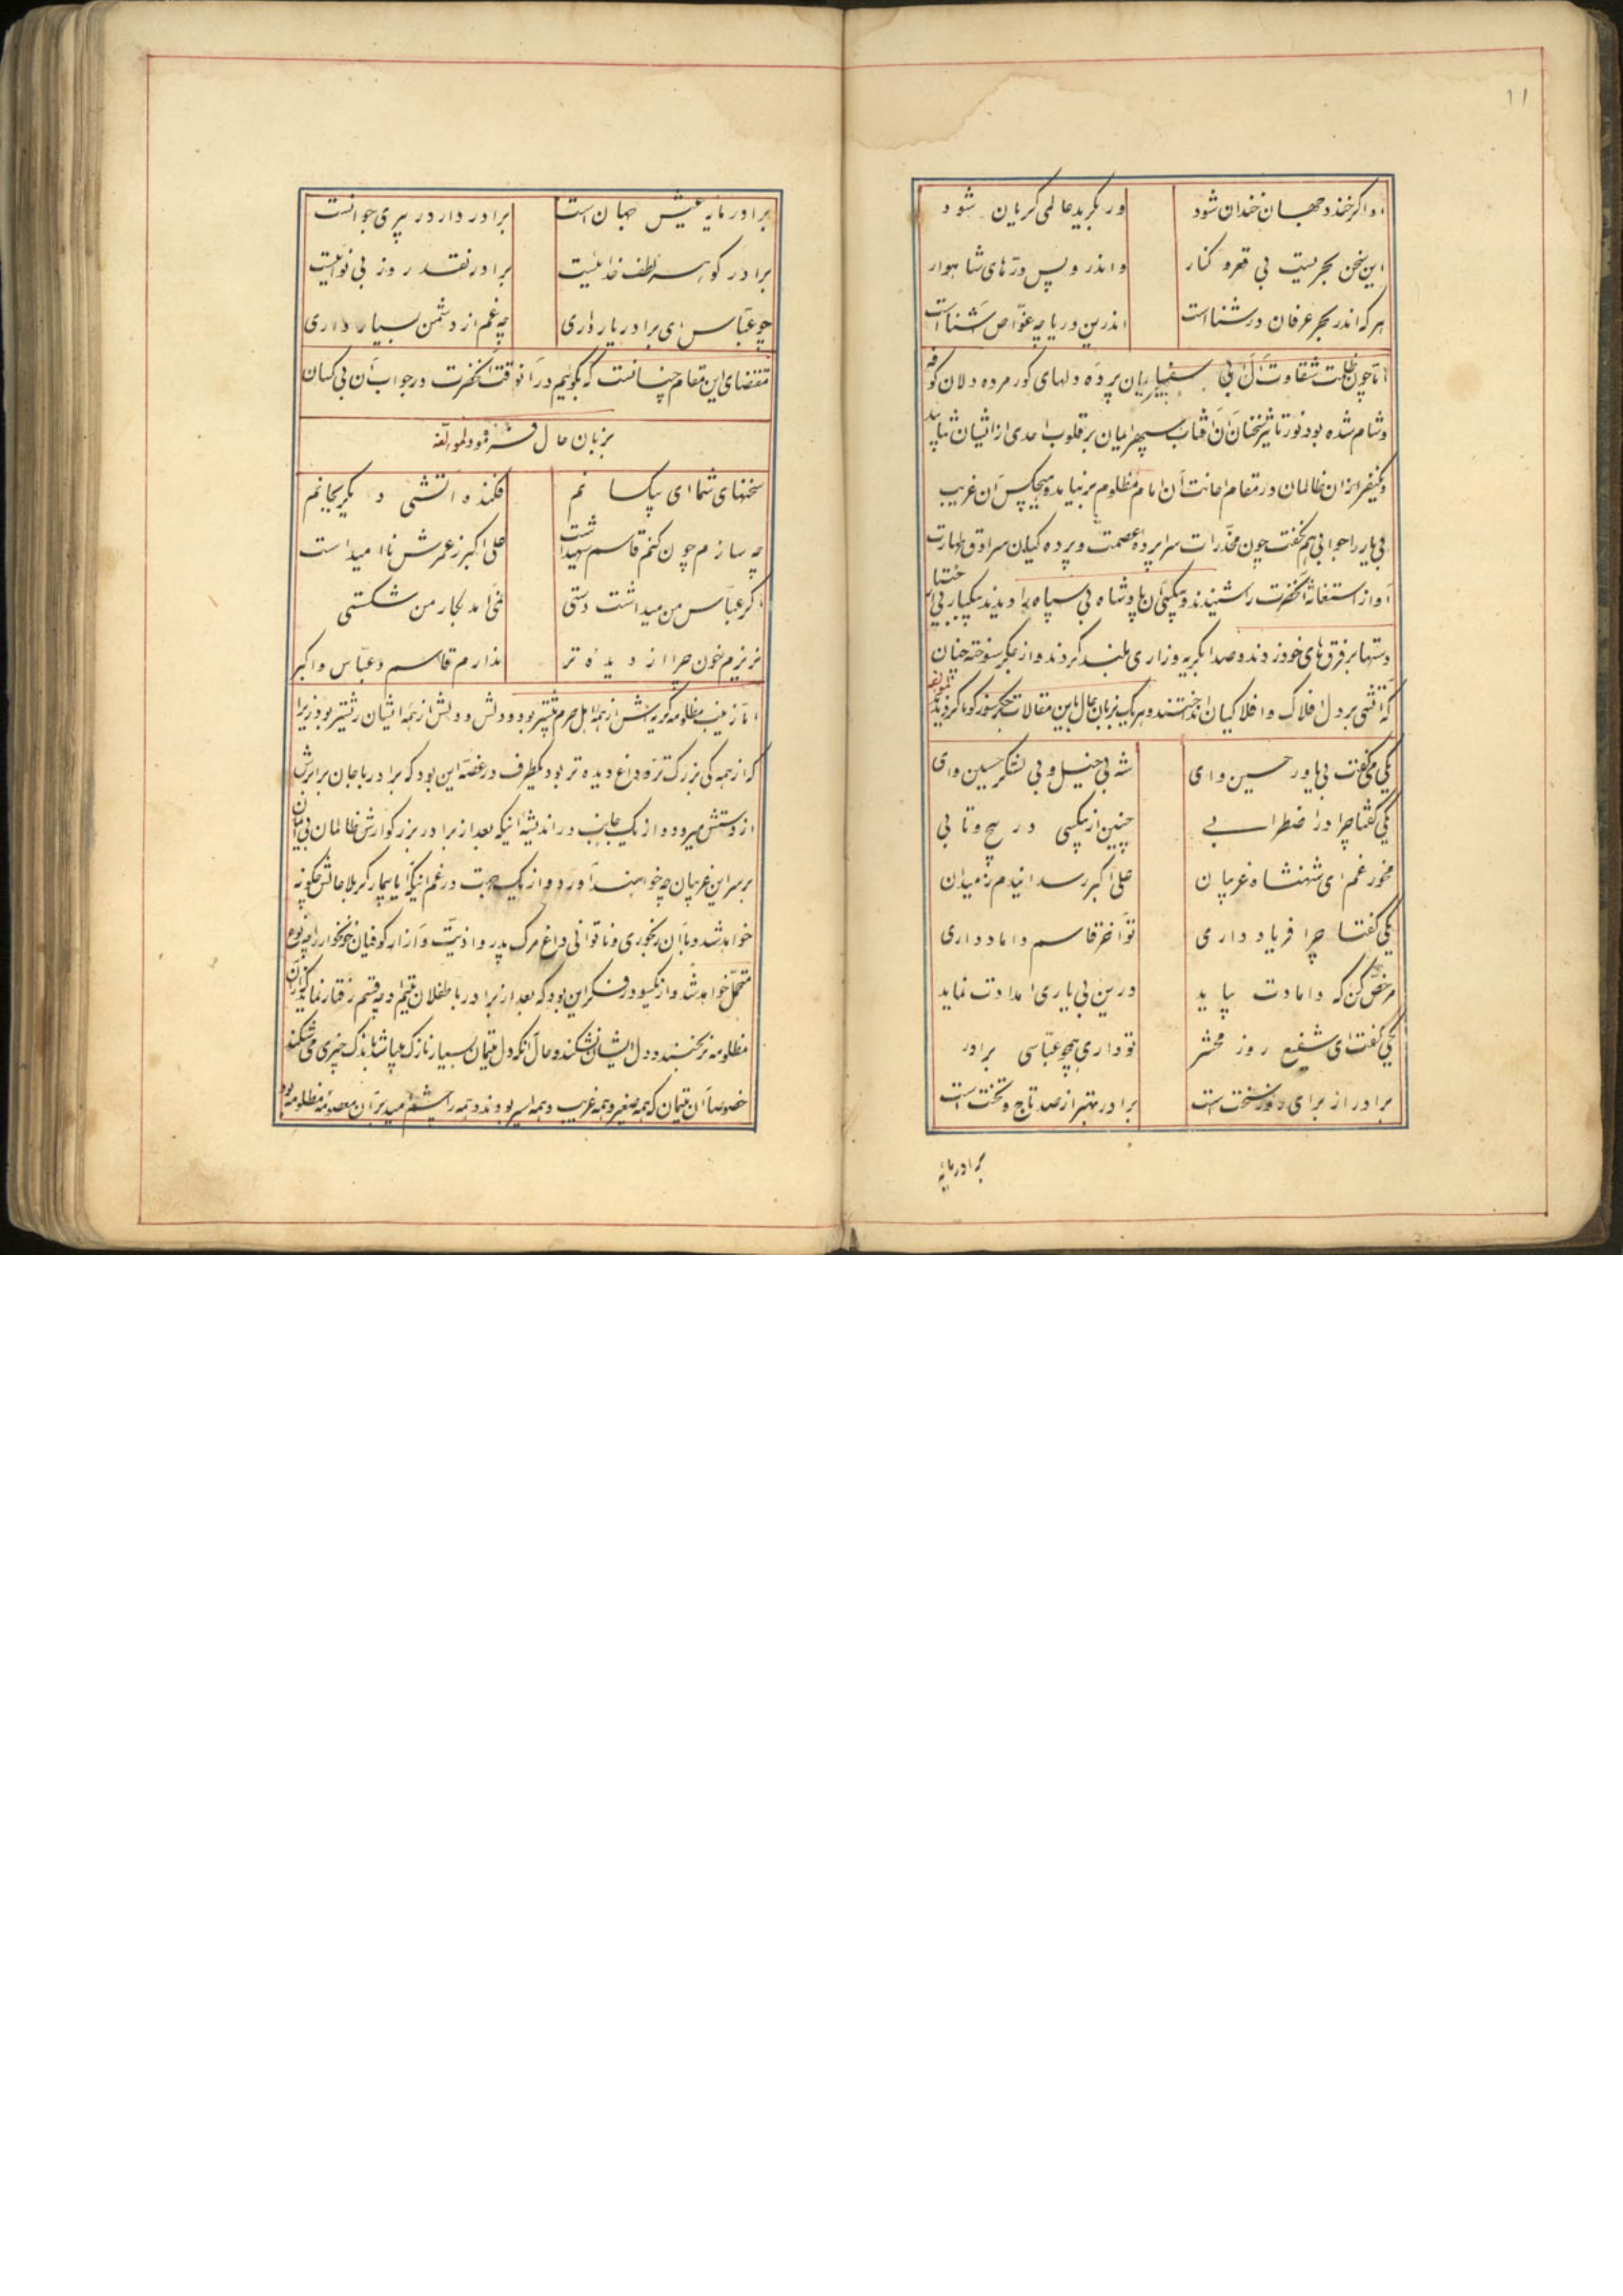 ۱۱
او اکر خندد جهان خندان شود ور بکرید عالمی کریان شود
این سخن بحریست بی قعر و کنار واندر و بس درّهای شاهوار
هر که اندر بحر عرفان در شنا است اندرین دریا چه غوّاص آشنا است
امّا چون ظلمت شقاوت آل ابی سفیان پرده دلهای کور مرده دلان کوفه
و شام شده بود نور تأثیر سخنان آن آفتاب سپهر ایمان بر قلوب احدی از ایشان نتابید
و یکنفر از ان ظالمان در مقام اعانت آن امام مظلوم بر نیامد و هیچکس آن غریب
بی یار را جوابی هم نکفت چون مخدّرات سراپرده عصمت و پرده کیان سرادق طهارت
آواز استغاثه آنحضرت را شنیدند و بیکسی آن پادشاه بی سپاه را دیدند بیکبار بی اختیار
دستها بر فرق های خود زدند و صدا بکریه و زاری بلند کردند و از جکر سوخته چنان
که آتشی بر دل افلاک و افلاکیان انداختند و هر یک بزبان حال باین مقالات جکرسوز کویا کردیدند لمؤلفه
یکی میکفت بی یاور حسین وای شه بی خیل و بی لشکر حسین وای
یکی کفتا چرا در اضطرابی چنین از بیکسی در پیچ و تابی
مخور غم ای شهنشاه غریبان علی اکبر رسد ایندم ز میدان
یکی کفتا چرا فریاد داری تو آخر قاسم داماد داری
مرخّص کن که دامادت بیاید درین بی یاری امدادت نماید
یکی کفت ای شفیع روز محشر تو داری همچو عبّاسی برادر
برادر از برای روز سخت است برادر بهتر از صد تاج و تخت است
برادر مایه
برادر مایه عیش جهان است برادر دار در پیری جوانست
برادر کوهر لطف خدائیست برادر نقد روز بی نوائیست
چو عبّاس ای برادر یار داری چه غم از دشمن بسیار داری
مقتضای این مقام چنانست که بکوئیم در آنوقت آنحضرت در جواب آن بی کسان
بزبان حال فرمود لمؤلفه
سخنهای شما ای بیکسانم فکنده آتشی دیکر بجانم
چه سازم چون کنم قاسم شهید است علی اکبر ز عمرش نا امید است
اکر عبّاس من میداشت دستی نمی آمد بکار من شکستی
نریزم خون چرا از دیده تر ندارم قاسم و عبّاس و اکبر
امّا زینب مظلومه کریه اش از همه اهل حرم بیشتر بود و دلش از همه ایشان ریشتر بود زیرا
که از همه کی بزرک تر و داغ دیده تر بود یکطرف در غصّه این بود که برادر با جان برابرش
از دستش میرود و از یک جانب در اندیشه اینکه بعد از برادر بزرکوارش ظالمان بی ایمان
بر سر این غریبان چه خواهند آورد و از یک جهت در غم اینکه آیا بیمار کربلا حالش چکونه
خواهد شد و با آن رنجوری و ناتوانی داغ مرک پدر و اذیّت و آزار کوفیان خونخوار را چه نوع
متحمّل خواهد شد و از یکسو در فکر این بود که بعد از برادر با طفلان یتیم او چه قسم رفتار نماید که از آن
مظلومه نرنجند و دل ایشان نشکند و حال آنکه دل یتیمان بسیار نازک میباشد باندک چیزی می شکند
خصوصاً آن یتیمان که همه صغیر و همه غریب و همه اسیر بودند و همه را چشم امید بر آن معصومه مظلومه بود